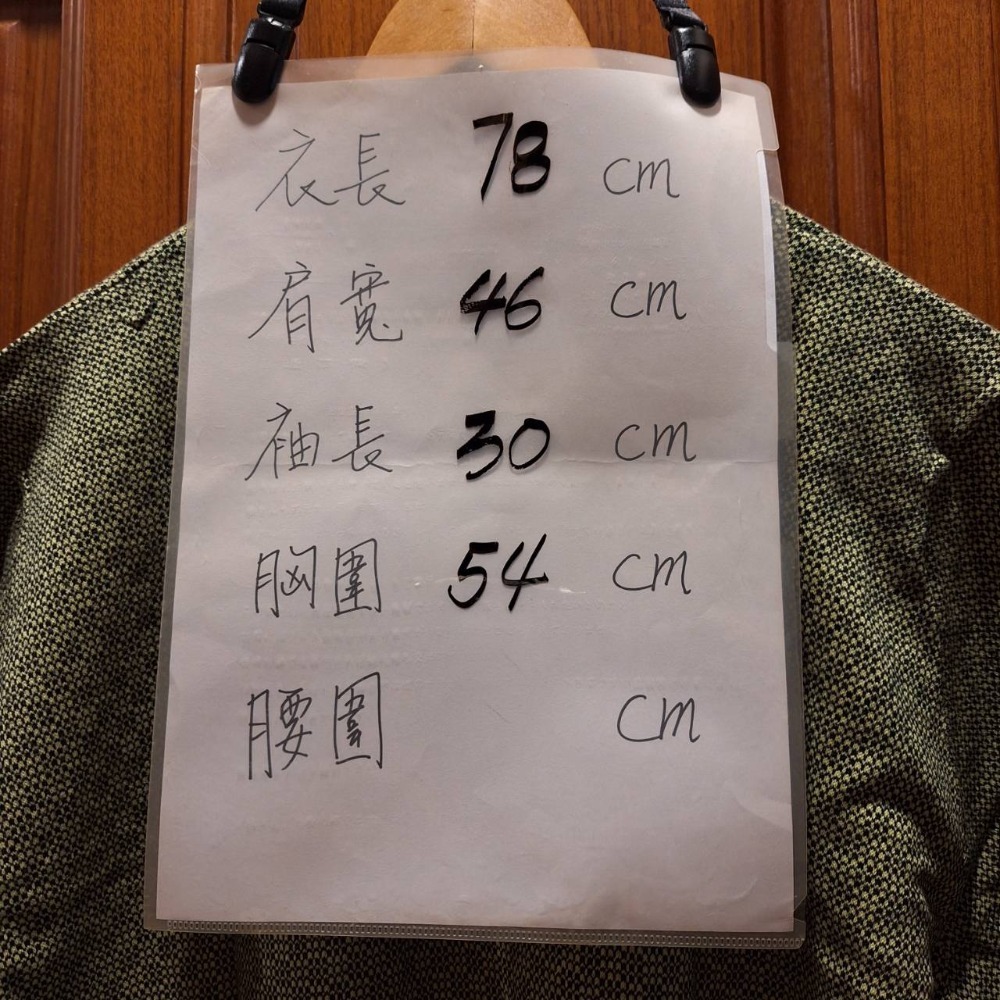 衣長 78 cm
肩寬 46 cm
袖長 30 cm
胸圍 54 cm
腰圍 cm